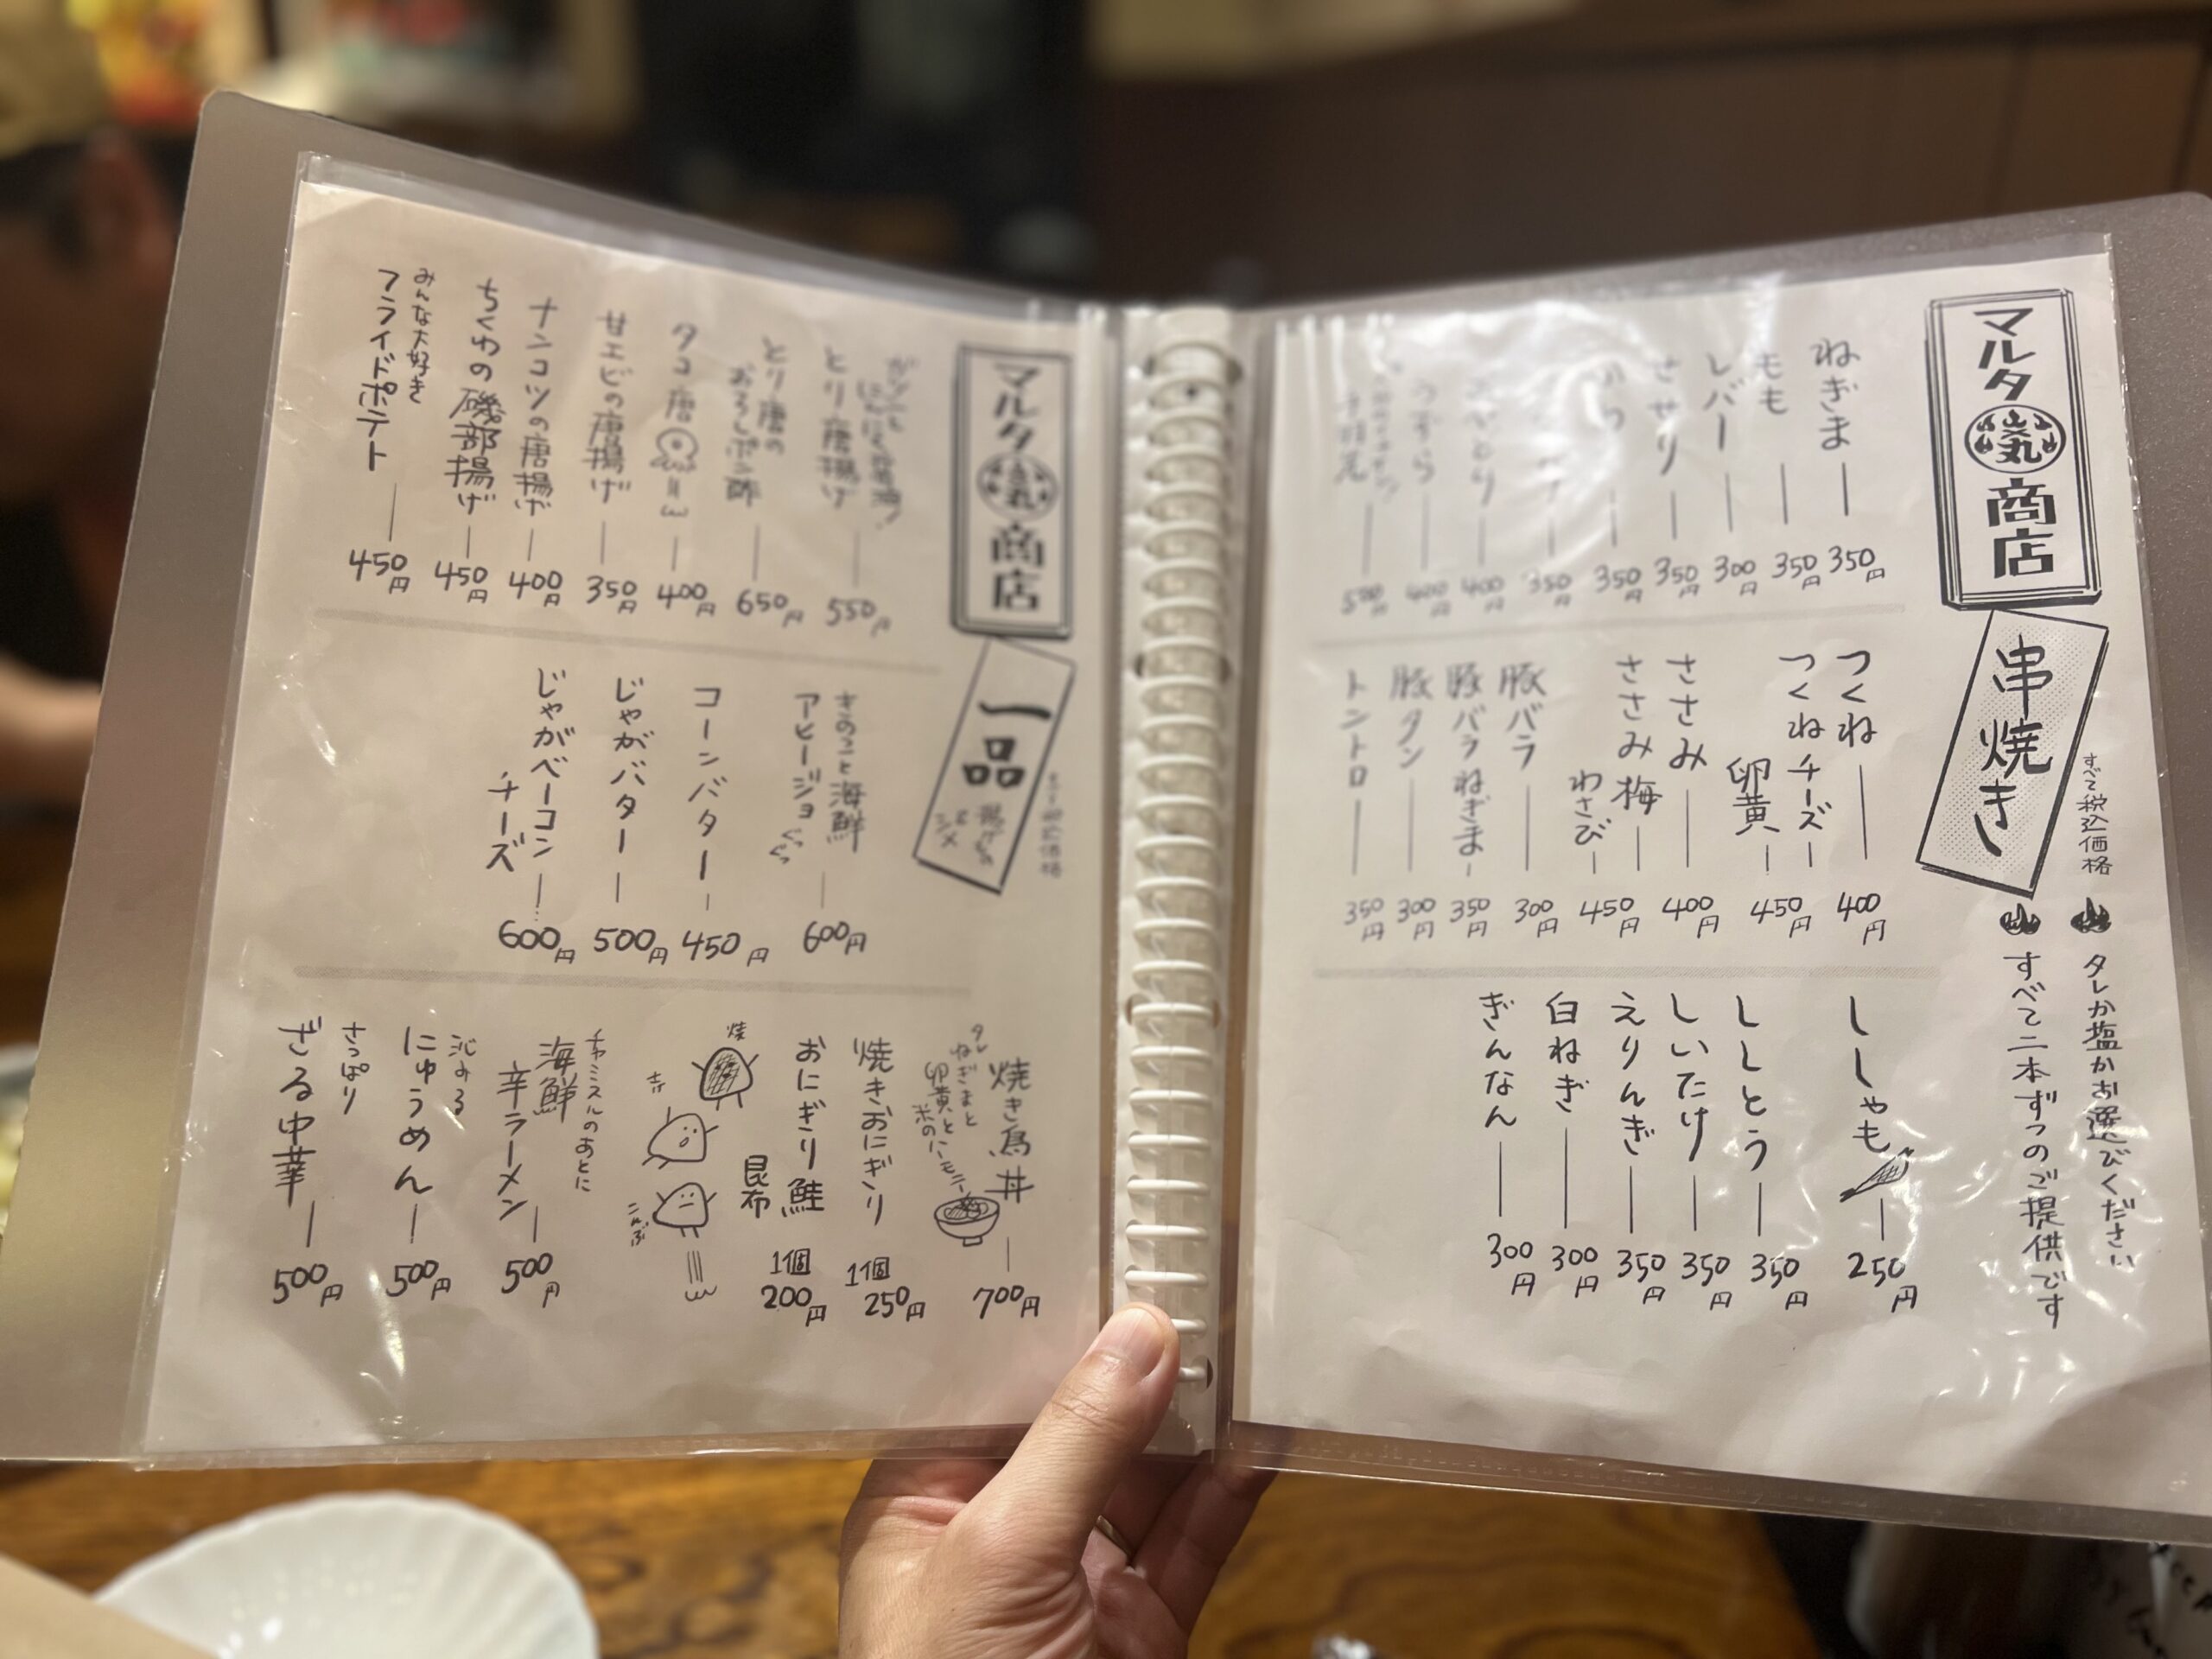 マルタ商店
串焼き
すべて税込価格
タレか塩かお選びください
すべて二本ずつのご提供です
ねぎま 350円
もも 350円
レバー 300円
せせり 350円
350円
350円
400円
うずら 400円
500円
つくね 400円
つくねチーズ
卵黄 450円
ささみ 400円
ささみ梅
わさび 450円
豚バラ 300円
豚バラねぎま 350円
豚タン 300円
トントロ 350円
ししゃも 250円
ししとう 350円
しいたけ 350円
えりんぎ 350円
白ねぎ 300円
ぎんなん 300円
マルタ商店
一品
揚げもの
〆
すべて税込価格
とり唐揚げ 550円
とり唐の
おろしポン酢 650円
タコ唐 400円
甘エビの唐揚げ 350円
ナンコツの唐揚げ 400円
ちくわの磯部揚げ 450円
みんな大好き
フライドポテト 450円
きのこと海鮮
アヒージョ 600円
コーンバター 450円
じゃがバター 500円
じゃがベーコン
チーズ 600円
焼き鳥丼 700円
タレ
ねぎまと
卵黄と
米のハーモニー
焼きおにぎり 1個 250円
おにぎり 鮭
昆布 1個 200円
焼
こんぶ
チャミスルのあとに
海鮮
辛ラーメン 500円
沁みる
にゅうめん 500円
さっぱり
ざる中華 500円